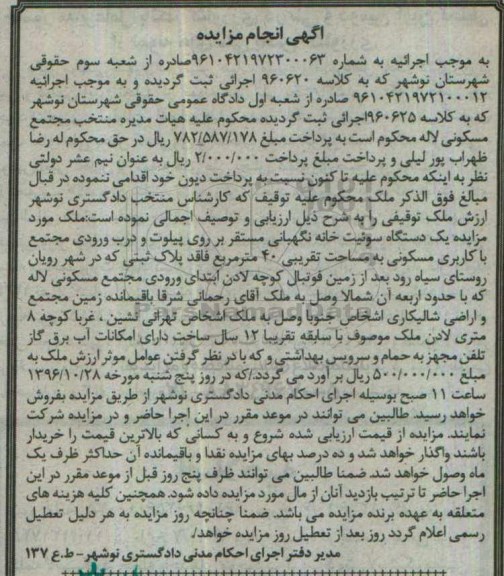 آگهی انجام مزایده
به موجب اجرائیه به شماره ۹۶۱۰۴۲۱۹۷۲۳۰۰۰۶۳صادره از شعبه سوم حقوقی
شهرستان نوشهر که به کلاسه ۹۶۰۶۲۰ اجرائی ثبت گردیده و به موجب اجرائیه
۹۶۱۰۴۲۱۹۷۲۱۰۰۰۱۲ صادره از شعبه اول دادگاه عمومی حقوقی شهرستان نوشهر
که به کلاسه ۹۶۰۶۲۵اجرائی ثبت گردیده محکوم علیه هیات مدیره منتخب مجتمع
مسکونی لاله محکوم است به پرداخت مبلغ ۷۸۲/۵۸۷/۱۷۸ ریال در حق محکوم له رضا
ظهراب پور لیلی و پرداخت مبلغ پرداخت ۲/۰۰۰/۰۰۰ ریال به عنوان نیم عشر دولتی
نظر به اینکه محکوم علیه تا کنون نسبت به پرداخت دیون خود اقدامی ننموده در قبال
مبالغ فوق الذکر ملک محکوم علیه توقیف که کارشناس منتخب دادگستری نوشهر
ارزش ملک توقیفی را به شرح ذیل ارزیابی و توصیف اجمالی نموده است:ملک مورد
مزایده یک دستگاه سوئیت خانه نگهبانی مستقر بر روی پیلوت و درب ورودی مجتمع
با کاربری مسکونی به مساحت تقریبی ۴۰ مترمربع فاقد پلاک ثبتی که در شهر رویان
روستای سیاه رود بعد از زمین فوتبال کوچه لادن ابتدای ورودی مجتمع مسکونی لاله
که با حدود اربعه آن شمالا وصل به ملک آقای رحمانی شرقا باقیمانده زمین مجتمع
و اراضی شالیکاری اشخاص جنوبا وصل به ملک اشخاص تهرانی نشین ، غربا کوچه ۸
متری لادن ملک موصوف با سابقه تقریبا ۱۲ سال ساخت دارای امکانات آب برق گاز
تلفن مجهز به حمام و سرویس بهداشتی و که با در نظر گرفتن عوامل موثر ارزش ملک به
مبلغ ۵۰۰/۰۰۰/۰۰۰ ریال بر آورد می گردد.که در روز پنج شنبه مورخه ۱۳۹۶/۱۰/۲۸
ساعت ۱۱ صبح بوسیله اجرای احکام مدنی دادگستری نوشهر از طریق مزایده بفروش
خواهد رسید. طالبین می توانند در موعد مقرر در این اجرا حاضر و در مزایده شرکت
نمایند. مزایده از قیمت ارزیابی شده شروع و به کسانی که بالاترین قیمت را خریدار
باشند واگذار خواهد شد و ده درصد بهای مزایده نقدا و باقیمانده آن حداکثر ظرف یک
ماه وصول خواهد شد. ضمنا طالبین می توانند ظرف پنج روز قبل از موعد مقرر در این
اجرا حاضر تا ترتیب بازدید آنان از مال مورد مزایده داده شود. همچنین کلیه هزینه های
متعلقه به عهده برنده مزایده می باشد. ضمنا چنانچه روز مزایده به هر دلیل تعطیل
رسمی اعلام گردد روز بعد از تعطیل روز مزایده خواهد/
مدیر دفتر اجرای احکام مدنی دادگستری نوشهر - ط.ع ۱۳۷